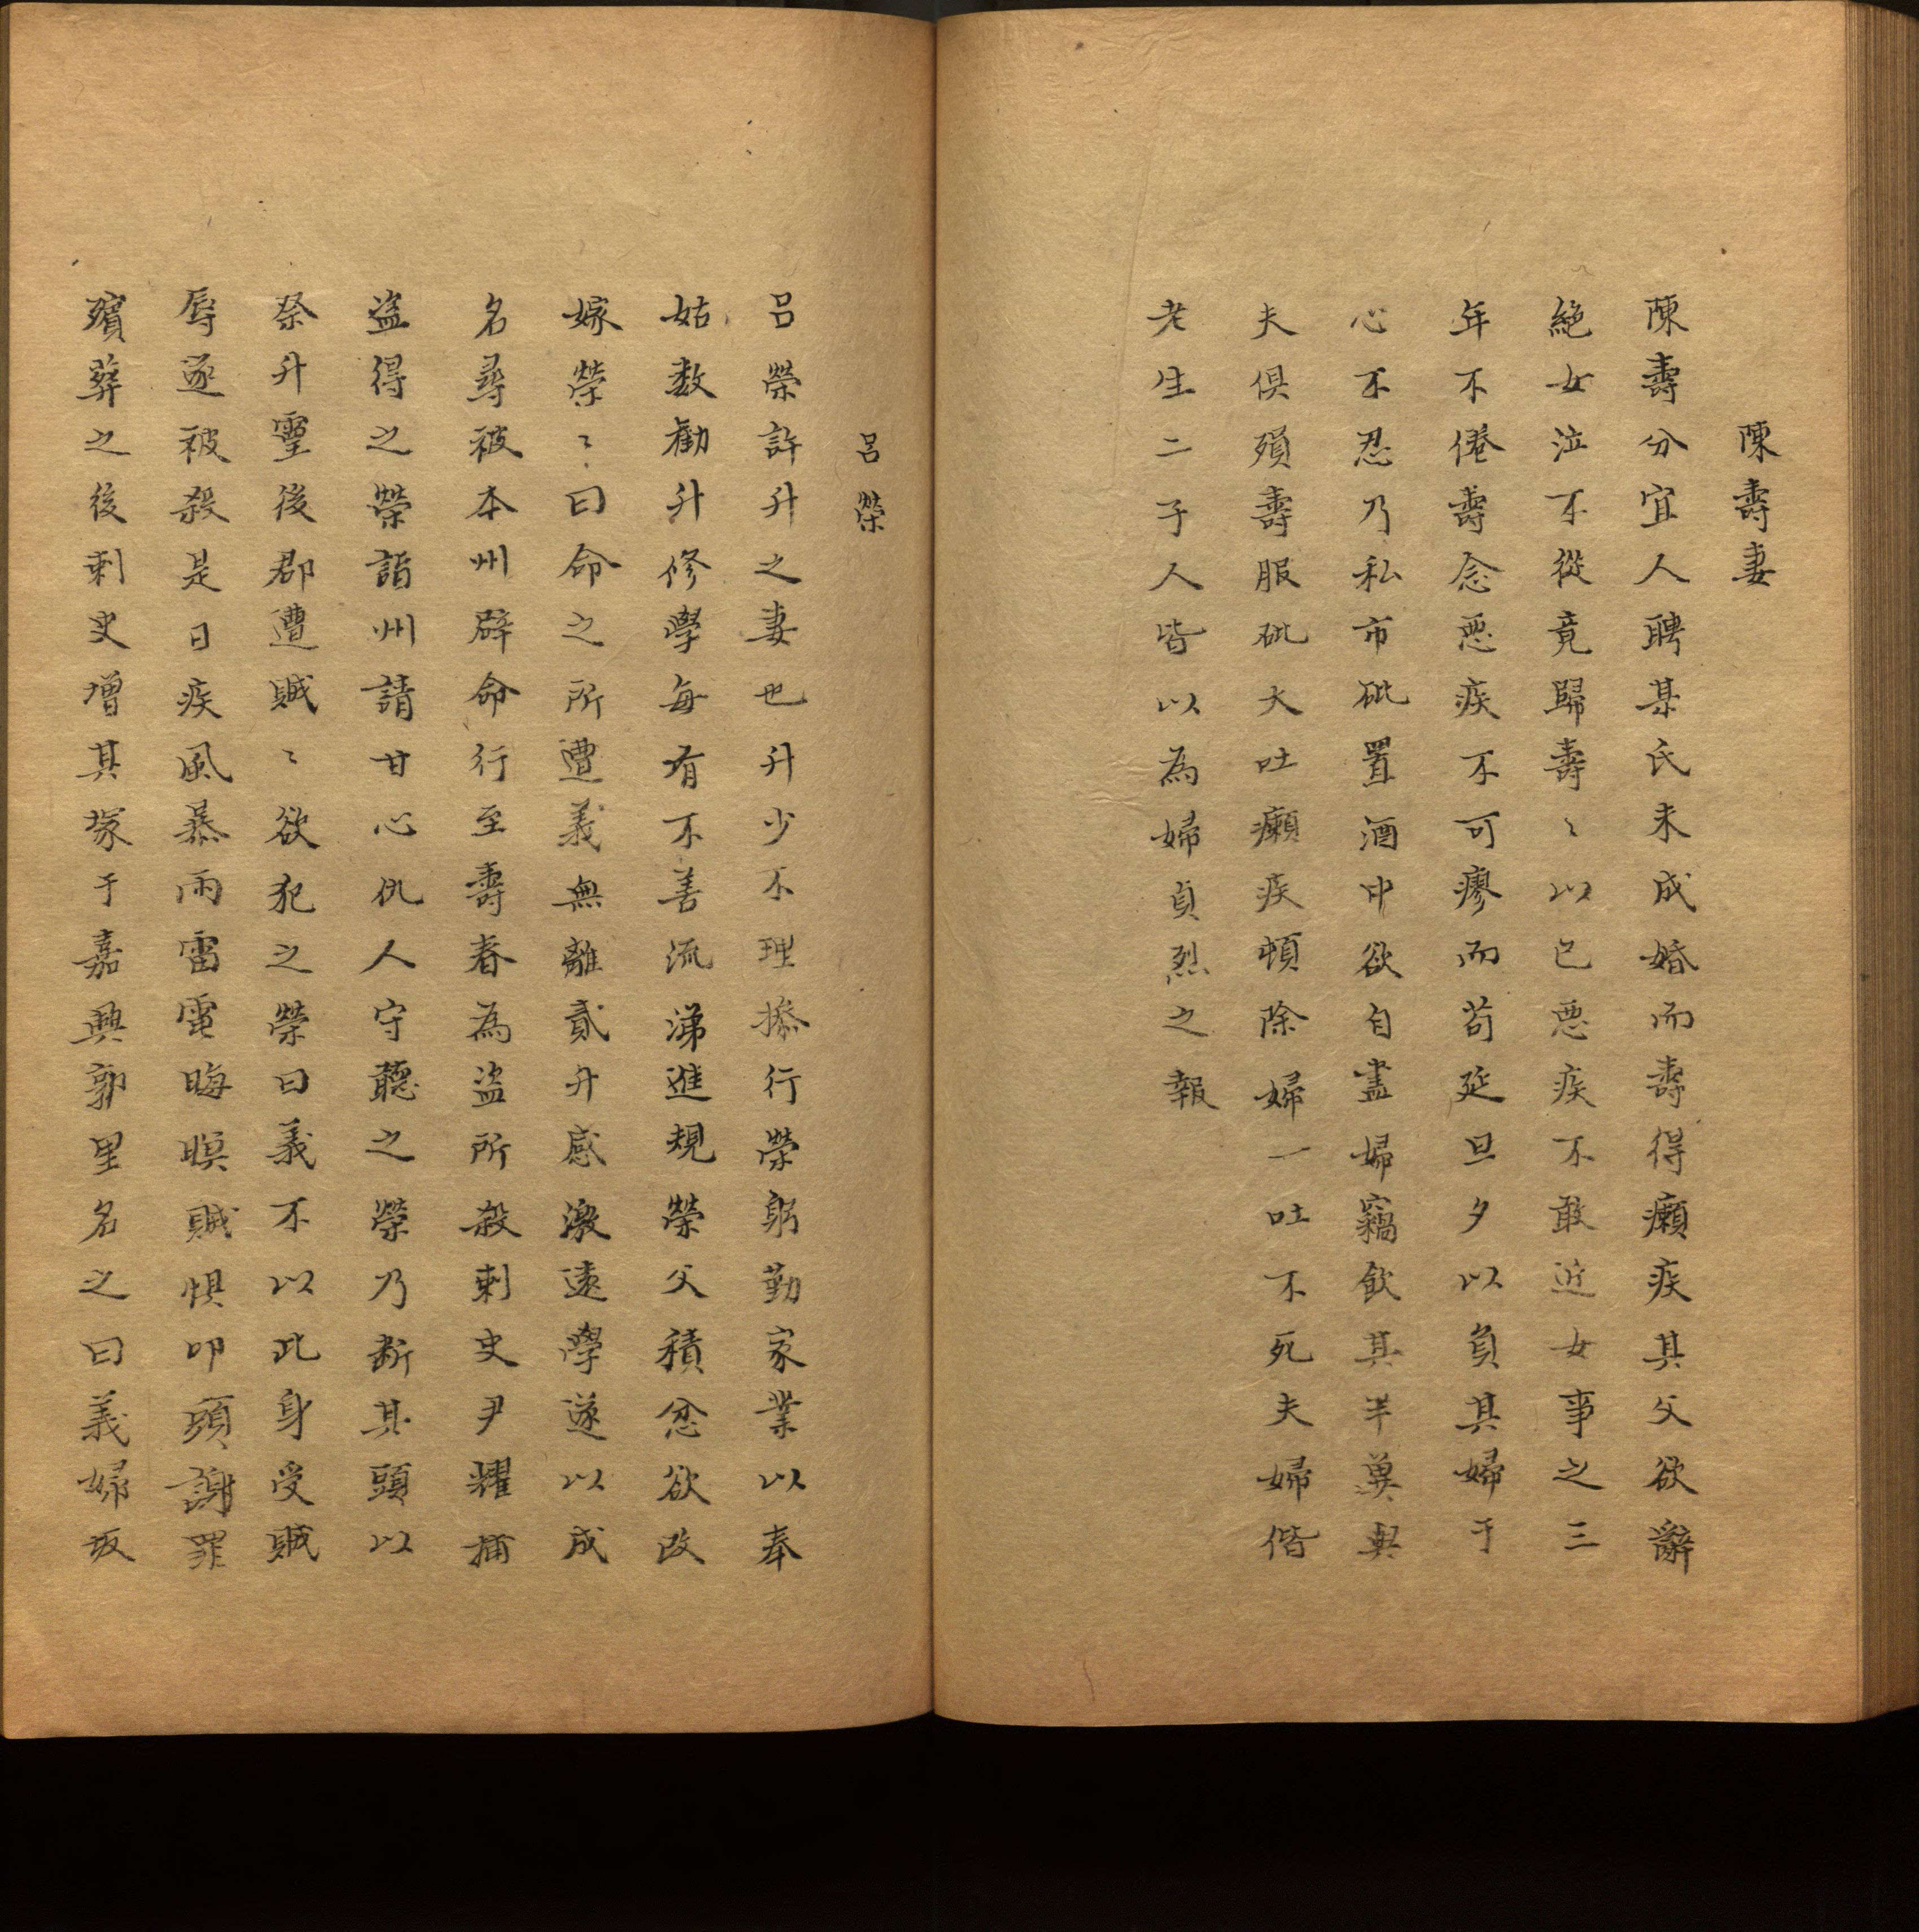 陳壽妻
陳壽分宜人聘某氏未成婚而壽得癩疾其父欲辭
絶女泣不從竟歸壽〻以已惡疾不敢近女事之三
年不倦壽念惡疾不可瘳而苟延旦夕以負其婦于
心不忍乃私市砒置酒中欲自盡婦竊飲其半兾與
夫俱殞壽服砒大吐癩疾頓除婦一吐不死夫婦偕
老生二子人皆以為婦貞烈之報
呂榮
呂榮許升之妻也升少不理操行榮躬勤家業以奉
姑数勸升修學每有不善流涕進規榮父積忿欲改
嫁榮〻曰命之所遭義無離貳升感激遠學遂以成
名尋被本州辟命行至壽春為盜所殺刺史尹耀捕
盜得之榮詣州請甘心仇人守聽之榮乃斷其頭以
祭升靈後郡遭賊〻欲犯之榮曰義不以此身受賊
辱遂被殺是日疾風暴雨雷電晦暝賊惧叩頭謝罪
殯葬之後刺史增其塚于嘉興郭里名之曰義婦坂